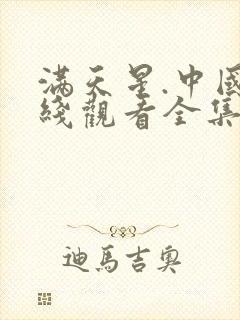 滿天星.中國
綫觀看全集
迪馬吉奧